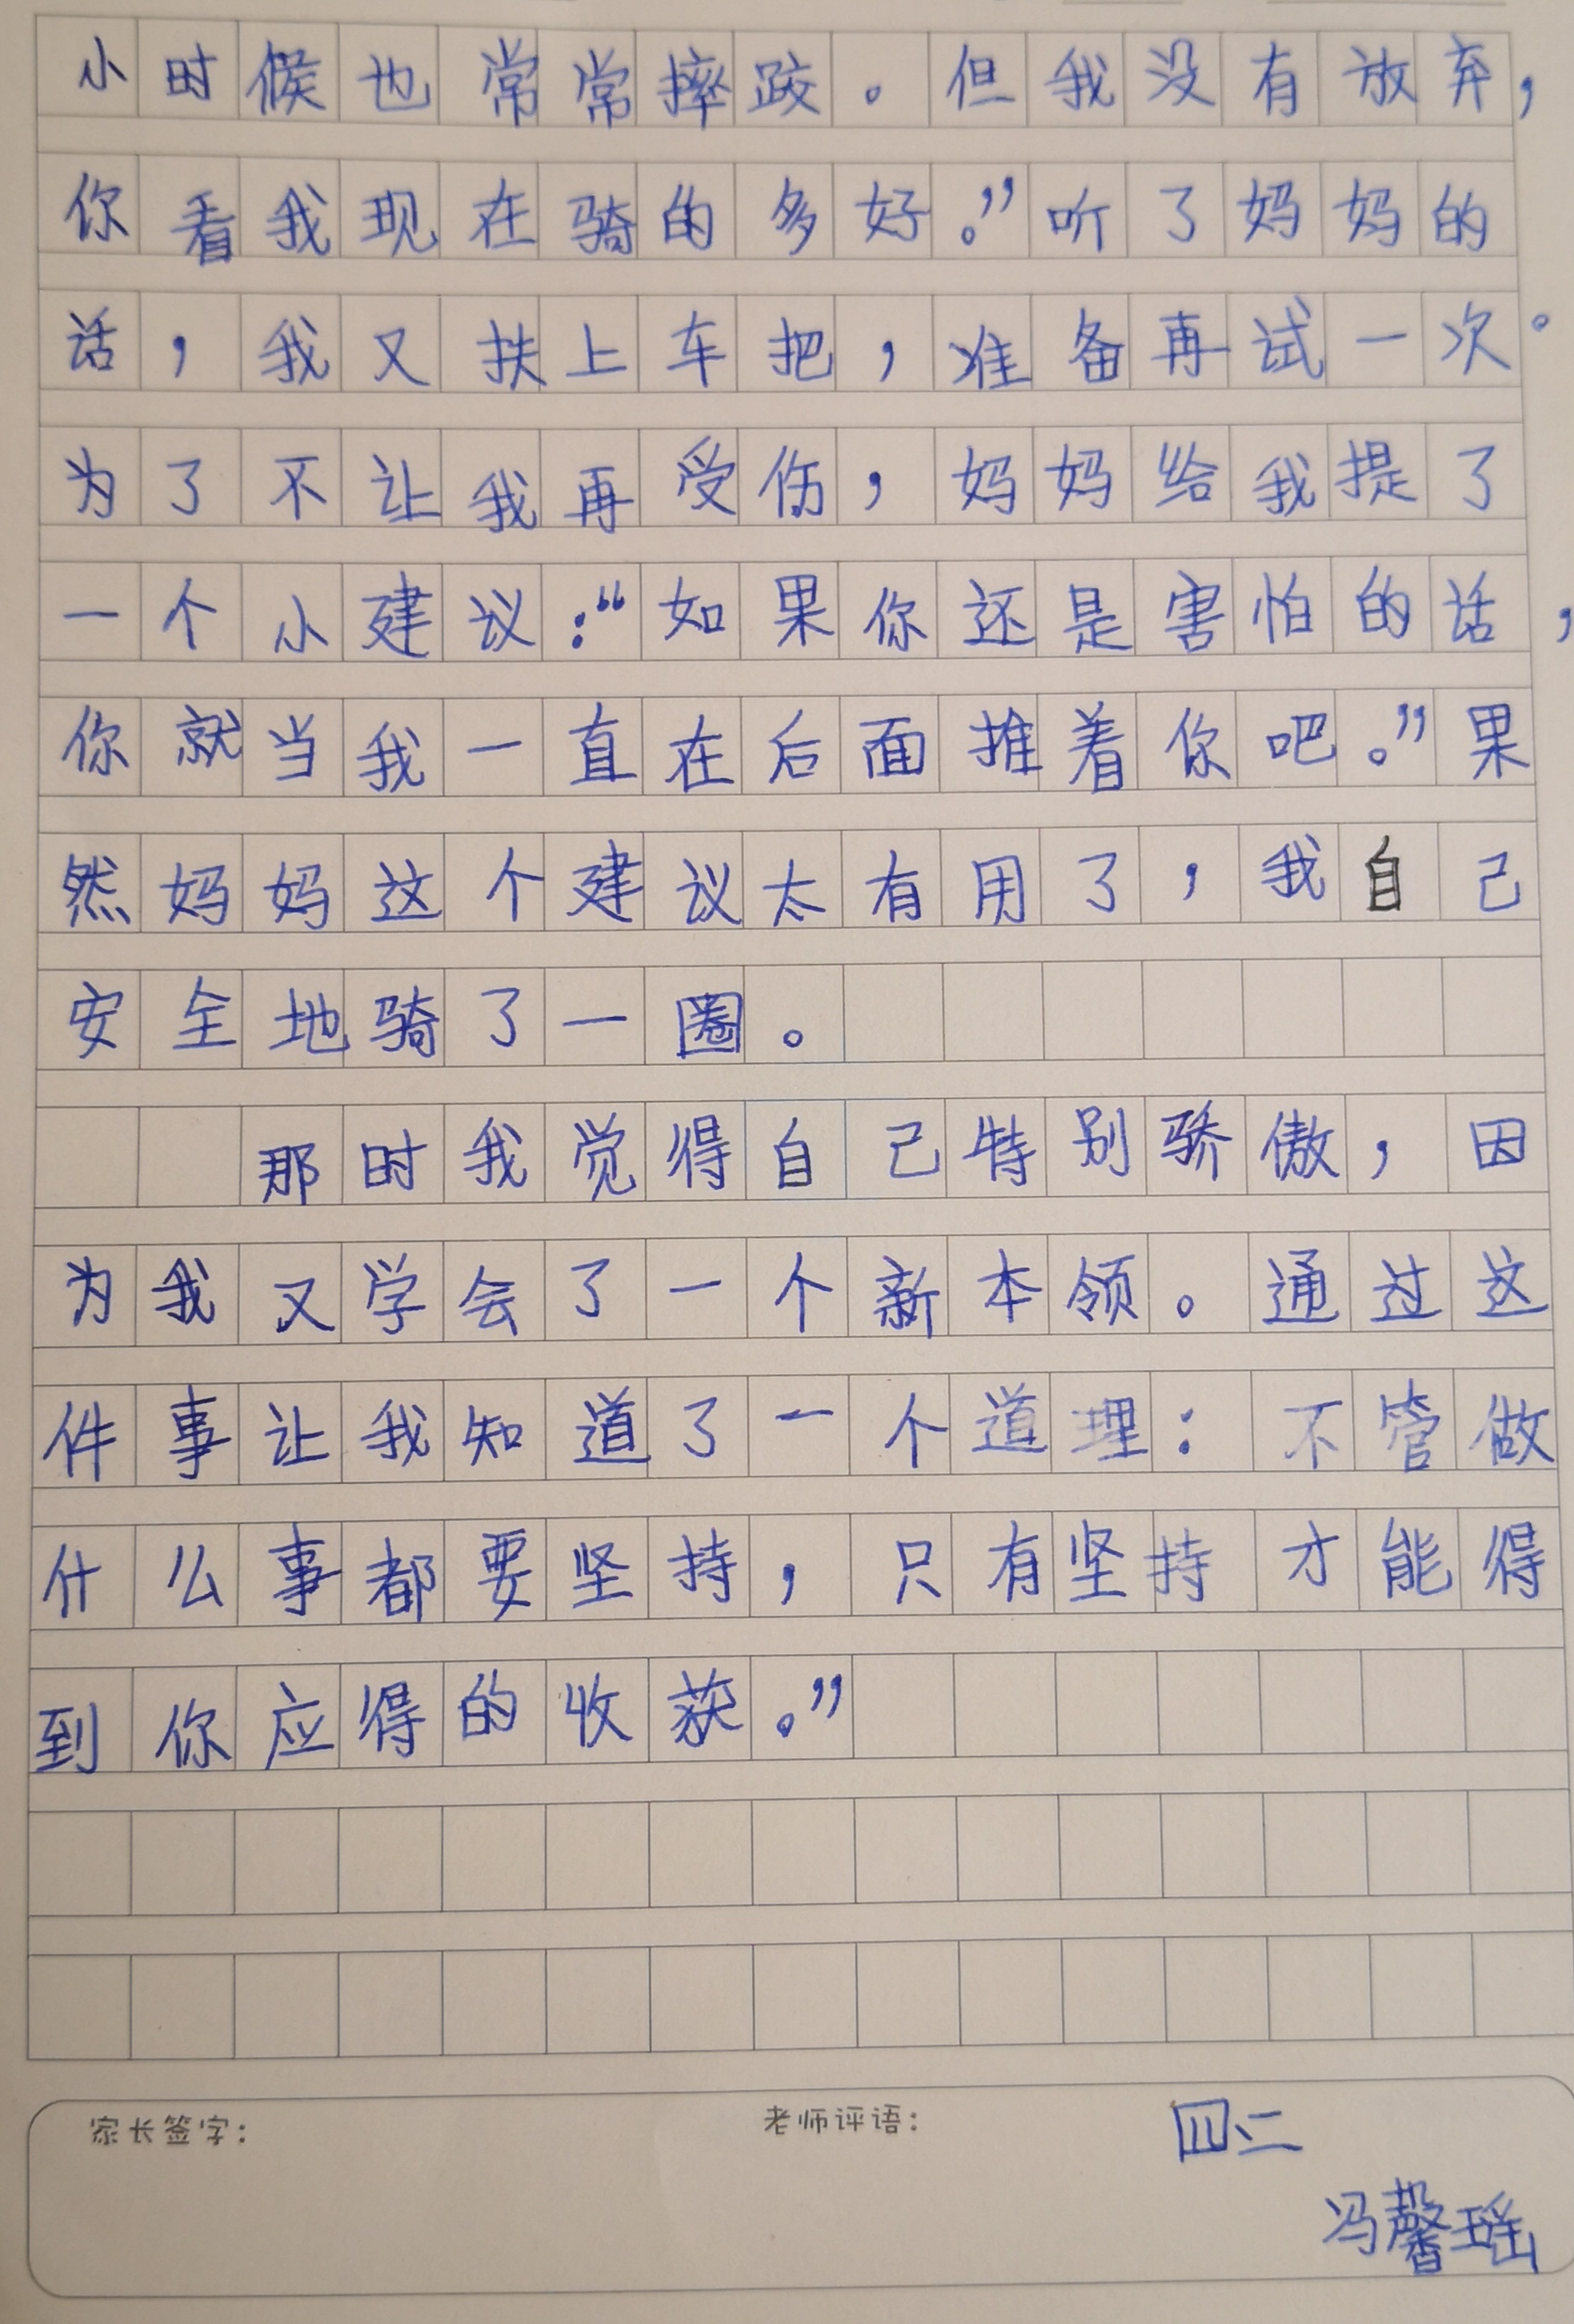 小时候也常常摔跤。但我没有放弃，
你看我现在骑的多好。”听了妈妈的
话，我又扶上车把，准备再试一次。
为了不让我再受伤，妈妈给我提了
一个小建议：“如果你还是害怕的话，
你就当我一直在后面推着你吧。”果
然妈妈这个建议太有用了，我自己
安全地骑了一圈。
那时我觉得自己特别骄傲，因
为我又学会了一个新本领。通过这
件事让我知道了一个道理：不管做
什么事都要坚持，只有坚持才能得
到你应得的收获。”
家长签字：
老师评语：
四二
冯馨瑶